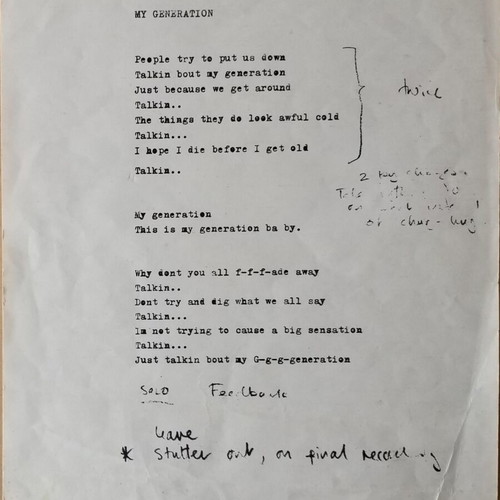 MY GENERATION
People try to put us down
Talkin bout my generation
Just because we get around
Talkin..
The things they do look awful cold
Talkin...
I hope I die before I get old
Talkin..
twice
2 key changes
My generation
This is my generation ba by.
Why dont you all f-f-f-ade away
Talkin..
Dont try and dig what we all say
Talkin...
Im not trying to cause a big sensation
Talkin...
Just talkin bout my G-g-g-generation
SOLO Feedback
leave
* Stutter out, on final recording